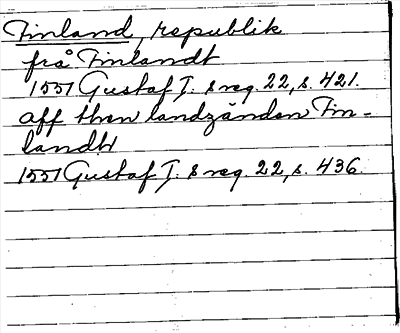 Finland, republik
från Finlandt
1551 Gustaf I:s reg. 22, s. 421.
aff then landzändan Fin-
landh
1551 Gustaf I:s reg. 22, s. 436.